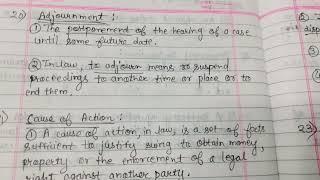 20) Adjournment :
① The postponement of the hearing of a case
until some future date.
② In law, to adjourn means to suspend
proceedings to another time or place or to
end them.
Cause of Action :
① A cause of action, in law, is a set of facts
sufficient to justify suing to obtain money,
property or the enforcement of a legal
right against another party.
2)
disp
23)